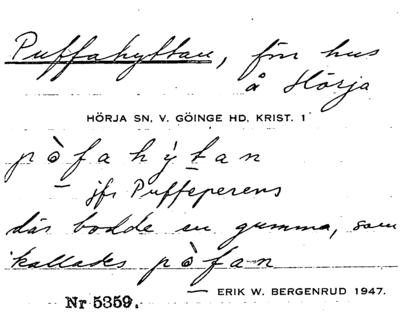 Puffahyttan, förr hus
å Hörja
HÖRJA SN, V. GÖINGE HD, KRIST. 1
pòfahýtan
jfr Puffeperens
där bodde en gumma, som
kallades pòfan
ERIK W. BERGENRUD 1947.
Nr 5359.